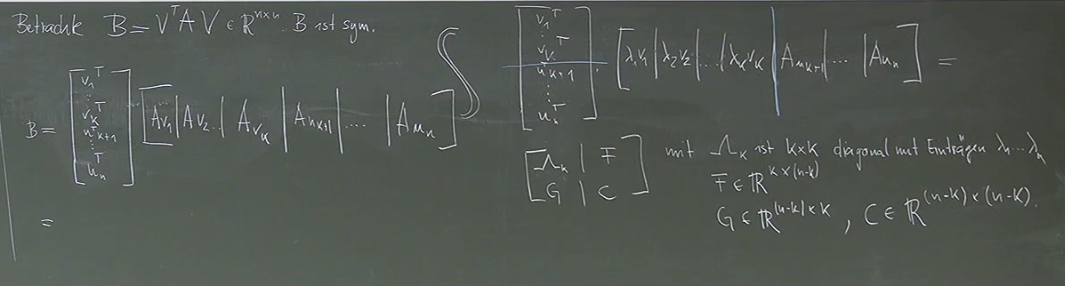 Betrachte B = VᵀAV ∈ ℝⁿˣⁿ. B ist sym.
B = [v₁ᵀ ⋮ v_kᵀ uᵀ_{k+1} ⋮ u_nᵀ] [Av₁ | Av₂ … | Av_k | Au_{k+1} | … | Au_n]
=
[v₁ᵀ ⋮ v_kᵀ u_{k+1}ᵀ ⋮ u_nᵀ] · [λ₁v₁ | λ₂v₂ | … | λ_kv_k | Au_{k+1} | … | Au_n] =
[Λ_k | F
G | C] mit Λ_k ist k×k diagonal mit Einträgen λ₁ … λ_k
F ∈ ℝ^{k×(n-k)}
G ∈ ℝ^{(n-k)×k}, C ∈ ℝ^{(n-k)×(n-k)}.